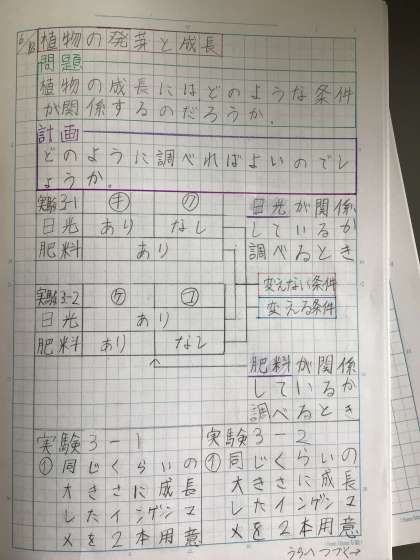 6/18
植物の発芽と成長
問題
植物の成長にはどのような条件
が関係するのだろうか。
計画
どのように調べればよいのでし
ょうか。
実験3-1 ㋖ ㋗
日光 あり なし
肥料 あり
日光が関係
しているか
調べるとき
実験3-2 ㋘ ㋙
日光 あり
肥料 あり なし
変えない条件
変える条件
肥料が関係
しているか
調べるとき
実験3-1
①同じくらいの
大きさに成長
したインゲンマ
メを2本用意
実験3-2
①同じくらいの
大きさに成長
したインゲンマ
メを2本用意
うらへつづく→